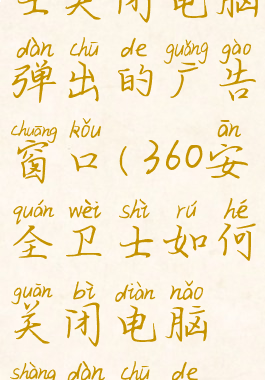 士关闭电脑
dàn chū de guǎng gào
弹出的广告
chuāng kǒu ān
窗口(360安
quán wèi shì rú hé
全卫士如何
guān bì diàn nǎo
关闭电脑
shàng dàn chū de